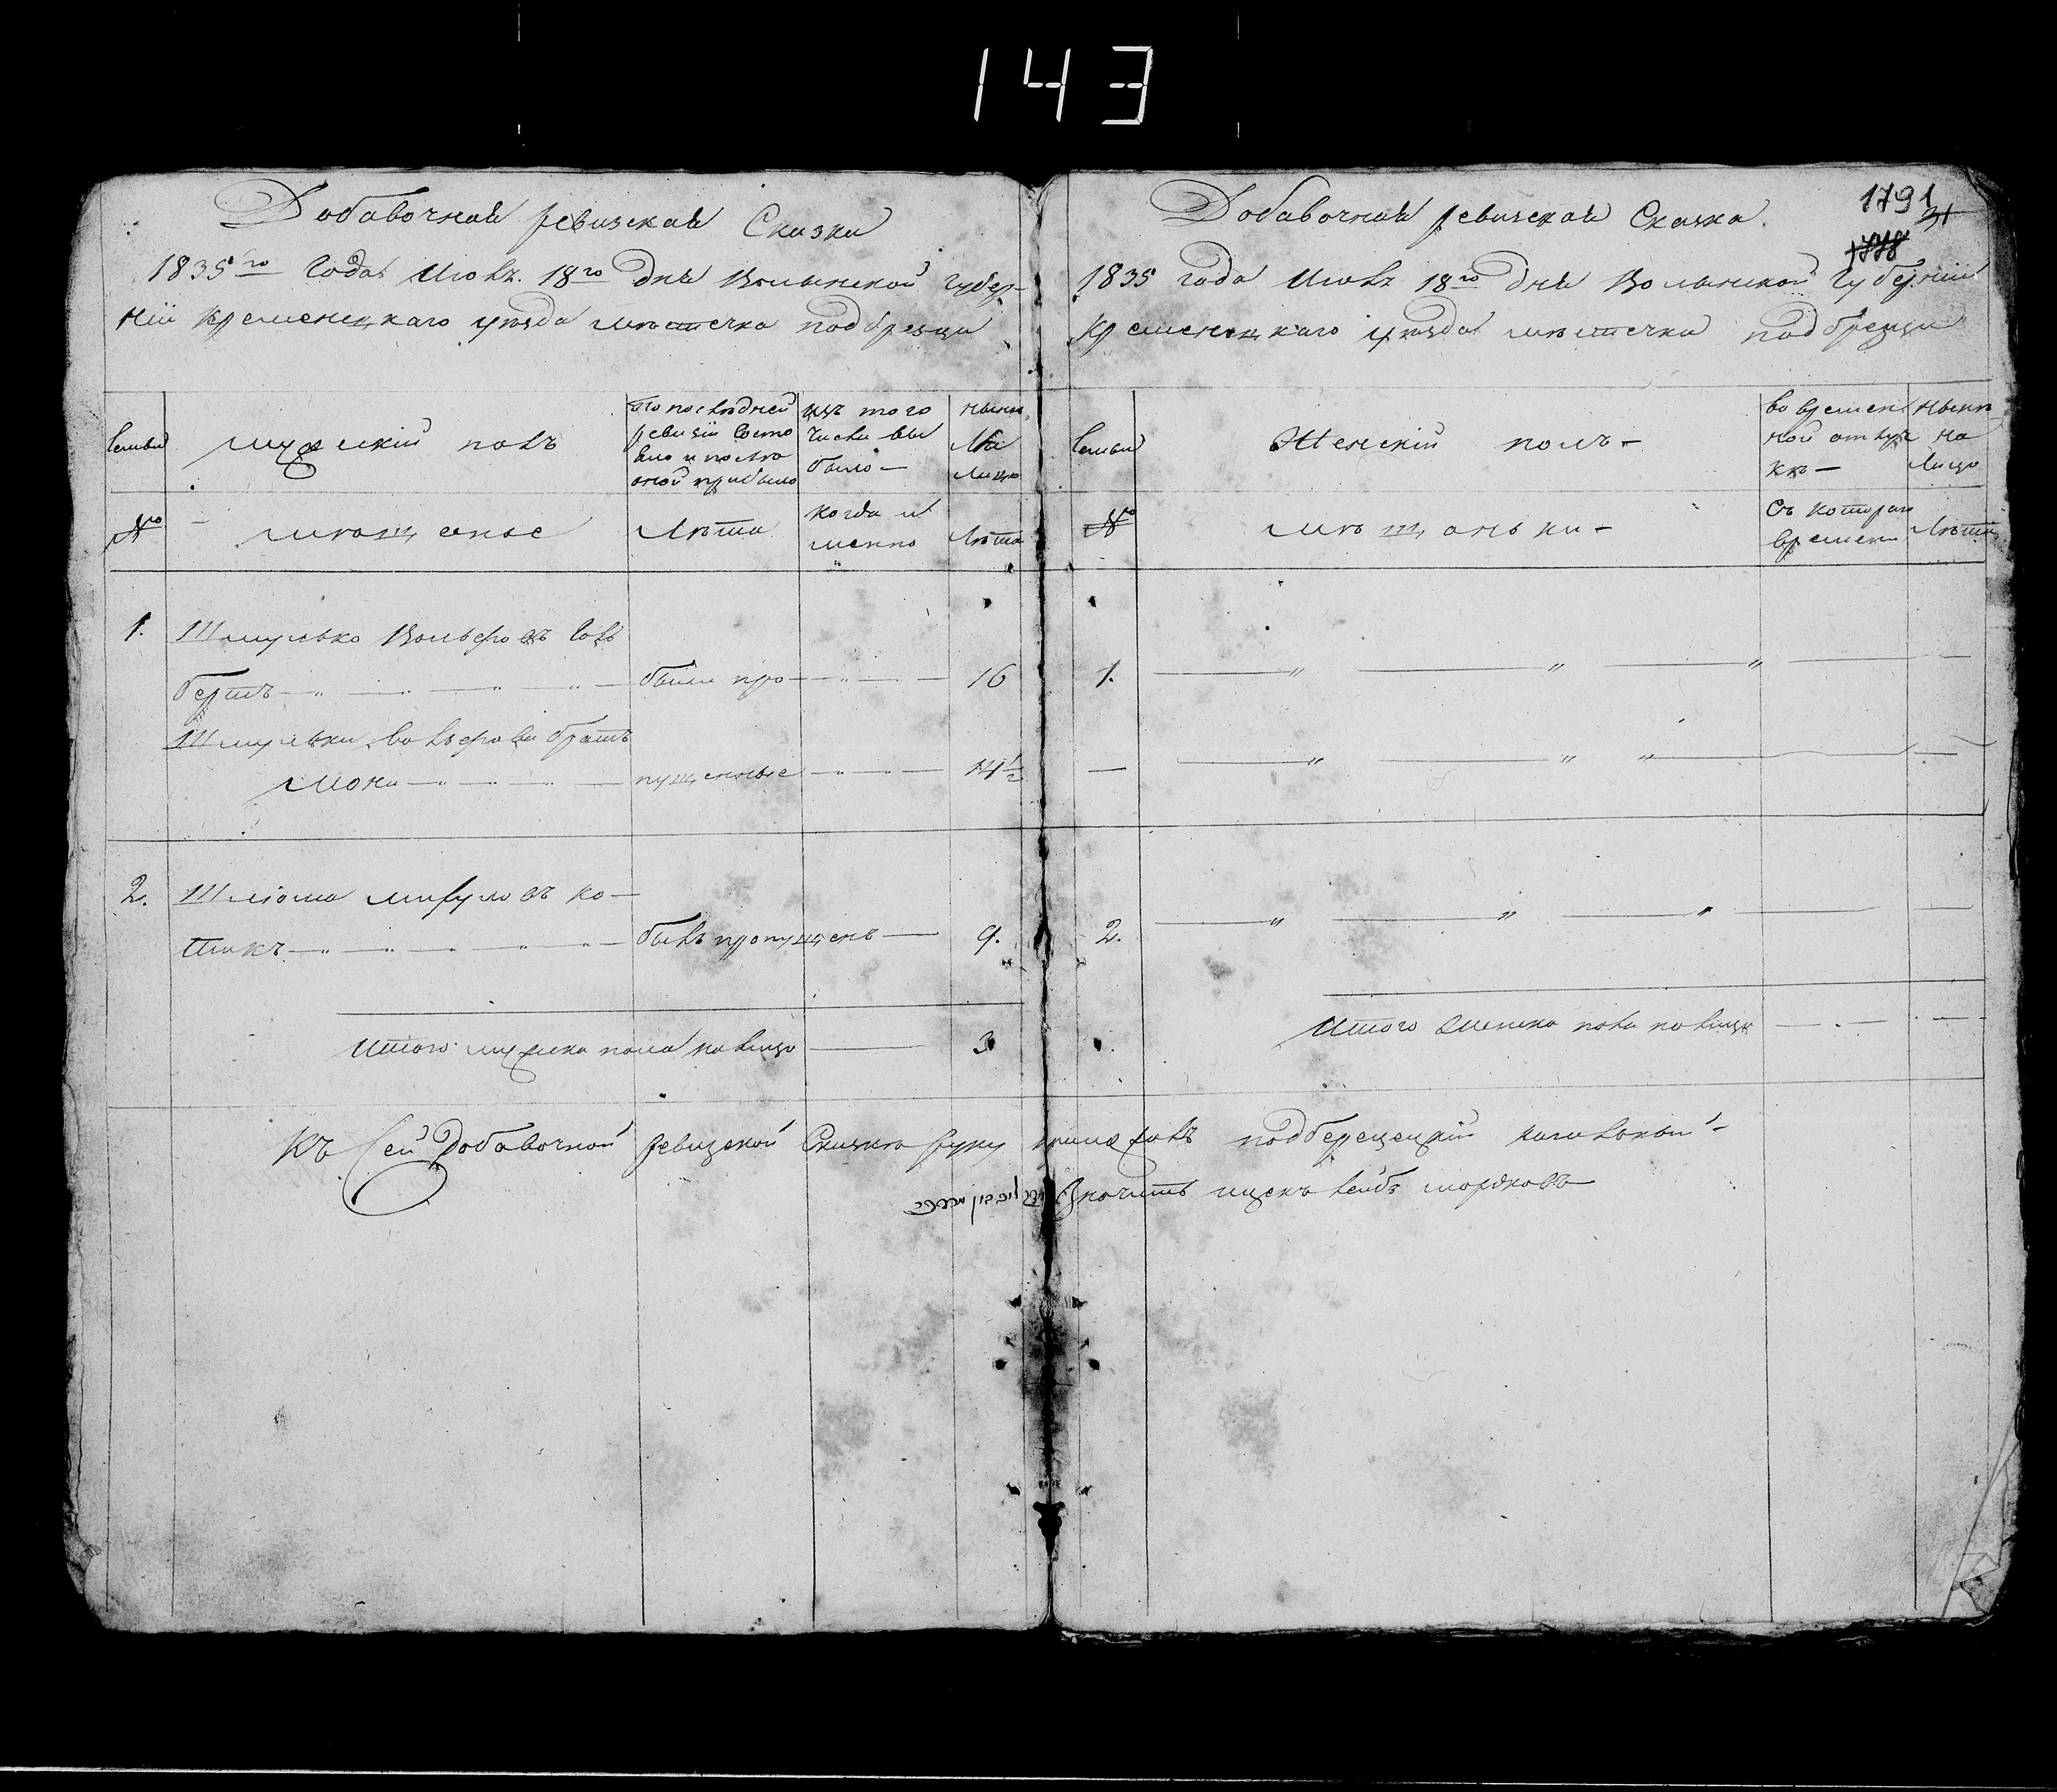 143
Добавочная ревизская Сказка
1835го Года Июль 18го дня Волынской Губер-
ніи Кременецкаго уезда местечка подбрезци
Семьи
мужскій полъ
По последней
ревизіи Состо
яло и после
оной прибыло
изъ того
числа вы
было —
ныне
На
лицо
№
мещане
Лета
когда и
менно
Лета
1. Шмулько ВольфовъГоль
бертъ были про 16
Шмулька Вольфова братъ
Мона пущенные 14½
2. Шліома ко-
тикъ былъ пропущенъ 9.
Итого мужска пола на лицо 3
1791
31
1778
Добавочная ревизская Сказка.
1835 года Июль 18го дня Волынской Губерніи
Кременецкаго уезда местечка подбрезци
Семьи
Женскій полъ —
во времен
ной отлуч
ке —
ныне
на
Лицо
№
мещанки —
Съ котораго
времени
Лета
1.
2.
Итого женска пола на лицо
Къ Сей добавочной ревизской Сказке руку приложилъ подберецецкій кагальный
ицекъ лейбъ мордковъ